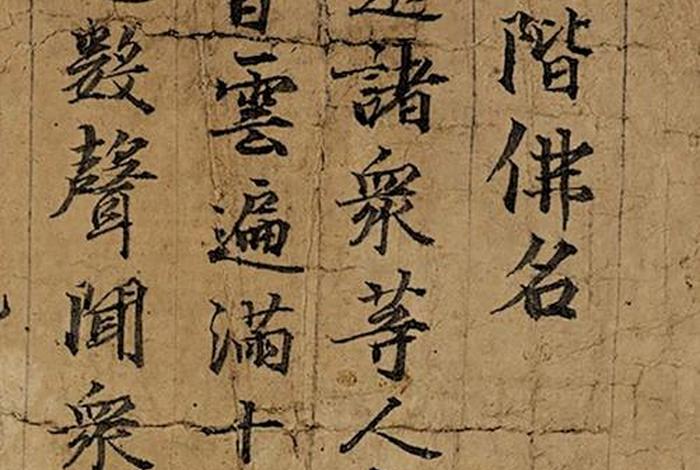 階佛名
諸衆等人
雲遍滿十
數聲聞衆